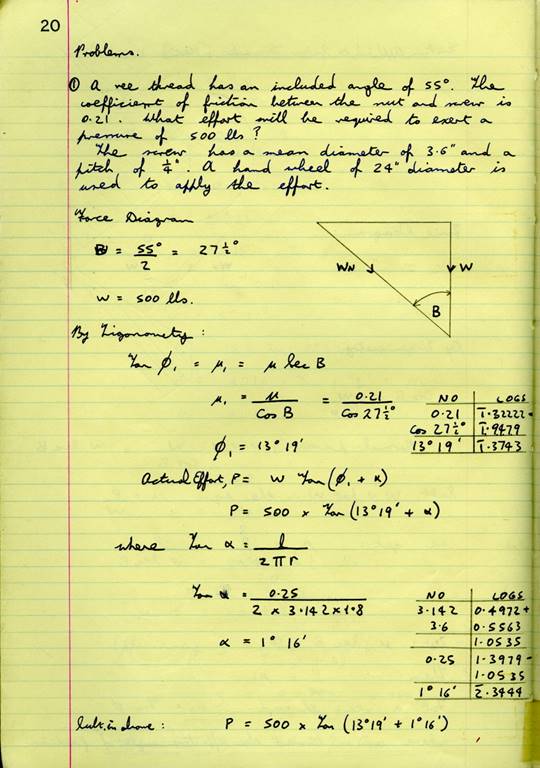 20
Problems.
① A vee thread has an included angle of 55°. The
coefficient of friction between the nut and screw is
0.21. What effort will be required to exert a
pressure of 500 lbs?
The screw has a mean diameter of 3.6" and a
pitch of ¼". A hand wheel of 24" diameter is
used to apply the effort.
Force Diagram
B = 55°/2 = 27½°
W = 500 lbs.
WN W
B
By Trigonometry:
Tan φ₁ = μ₁ = μ sec B
μ₁ = μ/Cos B = 0.21/Cos 27½°
φ₁ = 13° 19'
NO LOGS
0.21 1̄.3222 -
Cos 27½° 1̄.9479
13° 19' 1̄.3743
Actual Effort, P = W Tan (φ₁ + α)
P = 500 × Tan (13°19' + α)
where Tan α = l/2πr
Tan α = 0.25/2 × 3.142 × 1.8
α = 1° 16'
NO LOGS
3.142 0.4972 +
3.6 0.5563
1.0535
0.25 1.3979 -
1.0535
1° 16' 2̄.3444
Subt. in above: P = 500 × Tan (13°19' + 1°16')